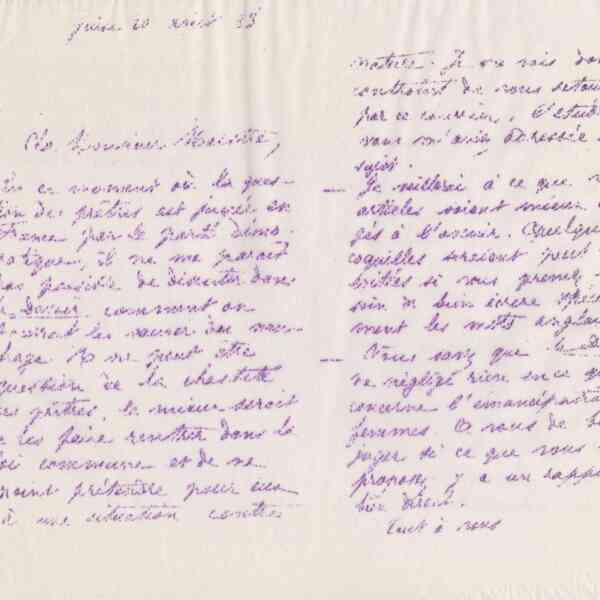 août 83
Cher Monsieur Maistre,
en ce moment où la ques-
tion des prêtres est jugée en
France par le parti démo-
cratique, il ne me paraît
pas possible de discuter dans
le Devoir comment on
pourrait les sauver du nau-
frage. Il ne peut être
question de la chasteté
des prêtres, le mieux serait
de les faire rentrer dans la
loi commune et de ne
point prétendre pour eux
à une situation contre
nature. Je me vois donc
contraint de vous retour
par ce courrier, l'étude
vous m'avez adressée
sujet.
— Je veillerai à ce que
articles soient mieux
gés à l'avenir. Quelques
coquilles seraient peut
évitées si vous preniez
soin de bien écrire spécia
ment les mots anglais
— Vous savez que le De
ne néglige rien en ce qui
concerne l'émancipation
femmes. À vous de
juger si ce que vous
proposez y a un rappo
bien direct.
Tout à vous